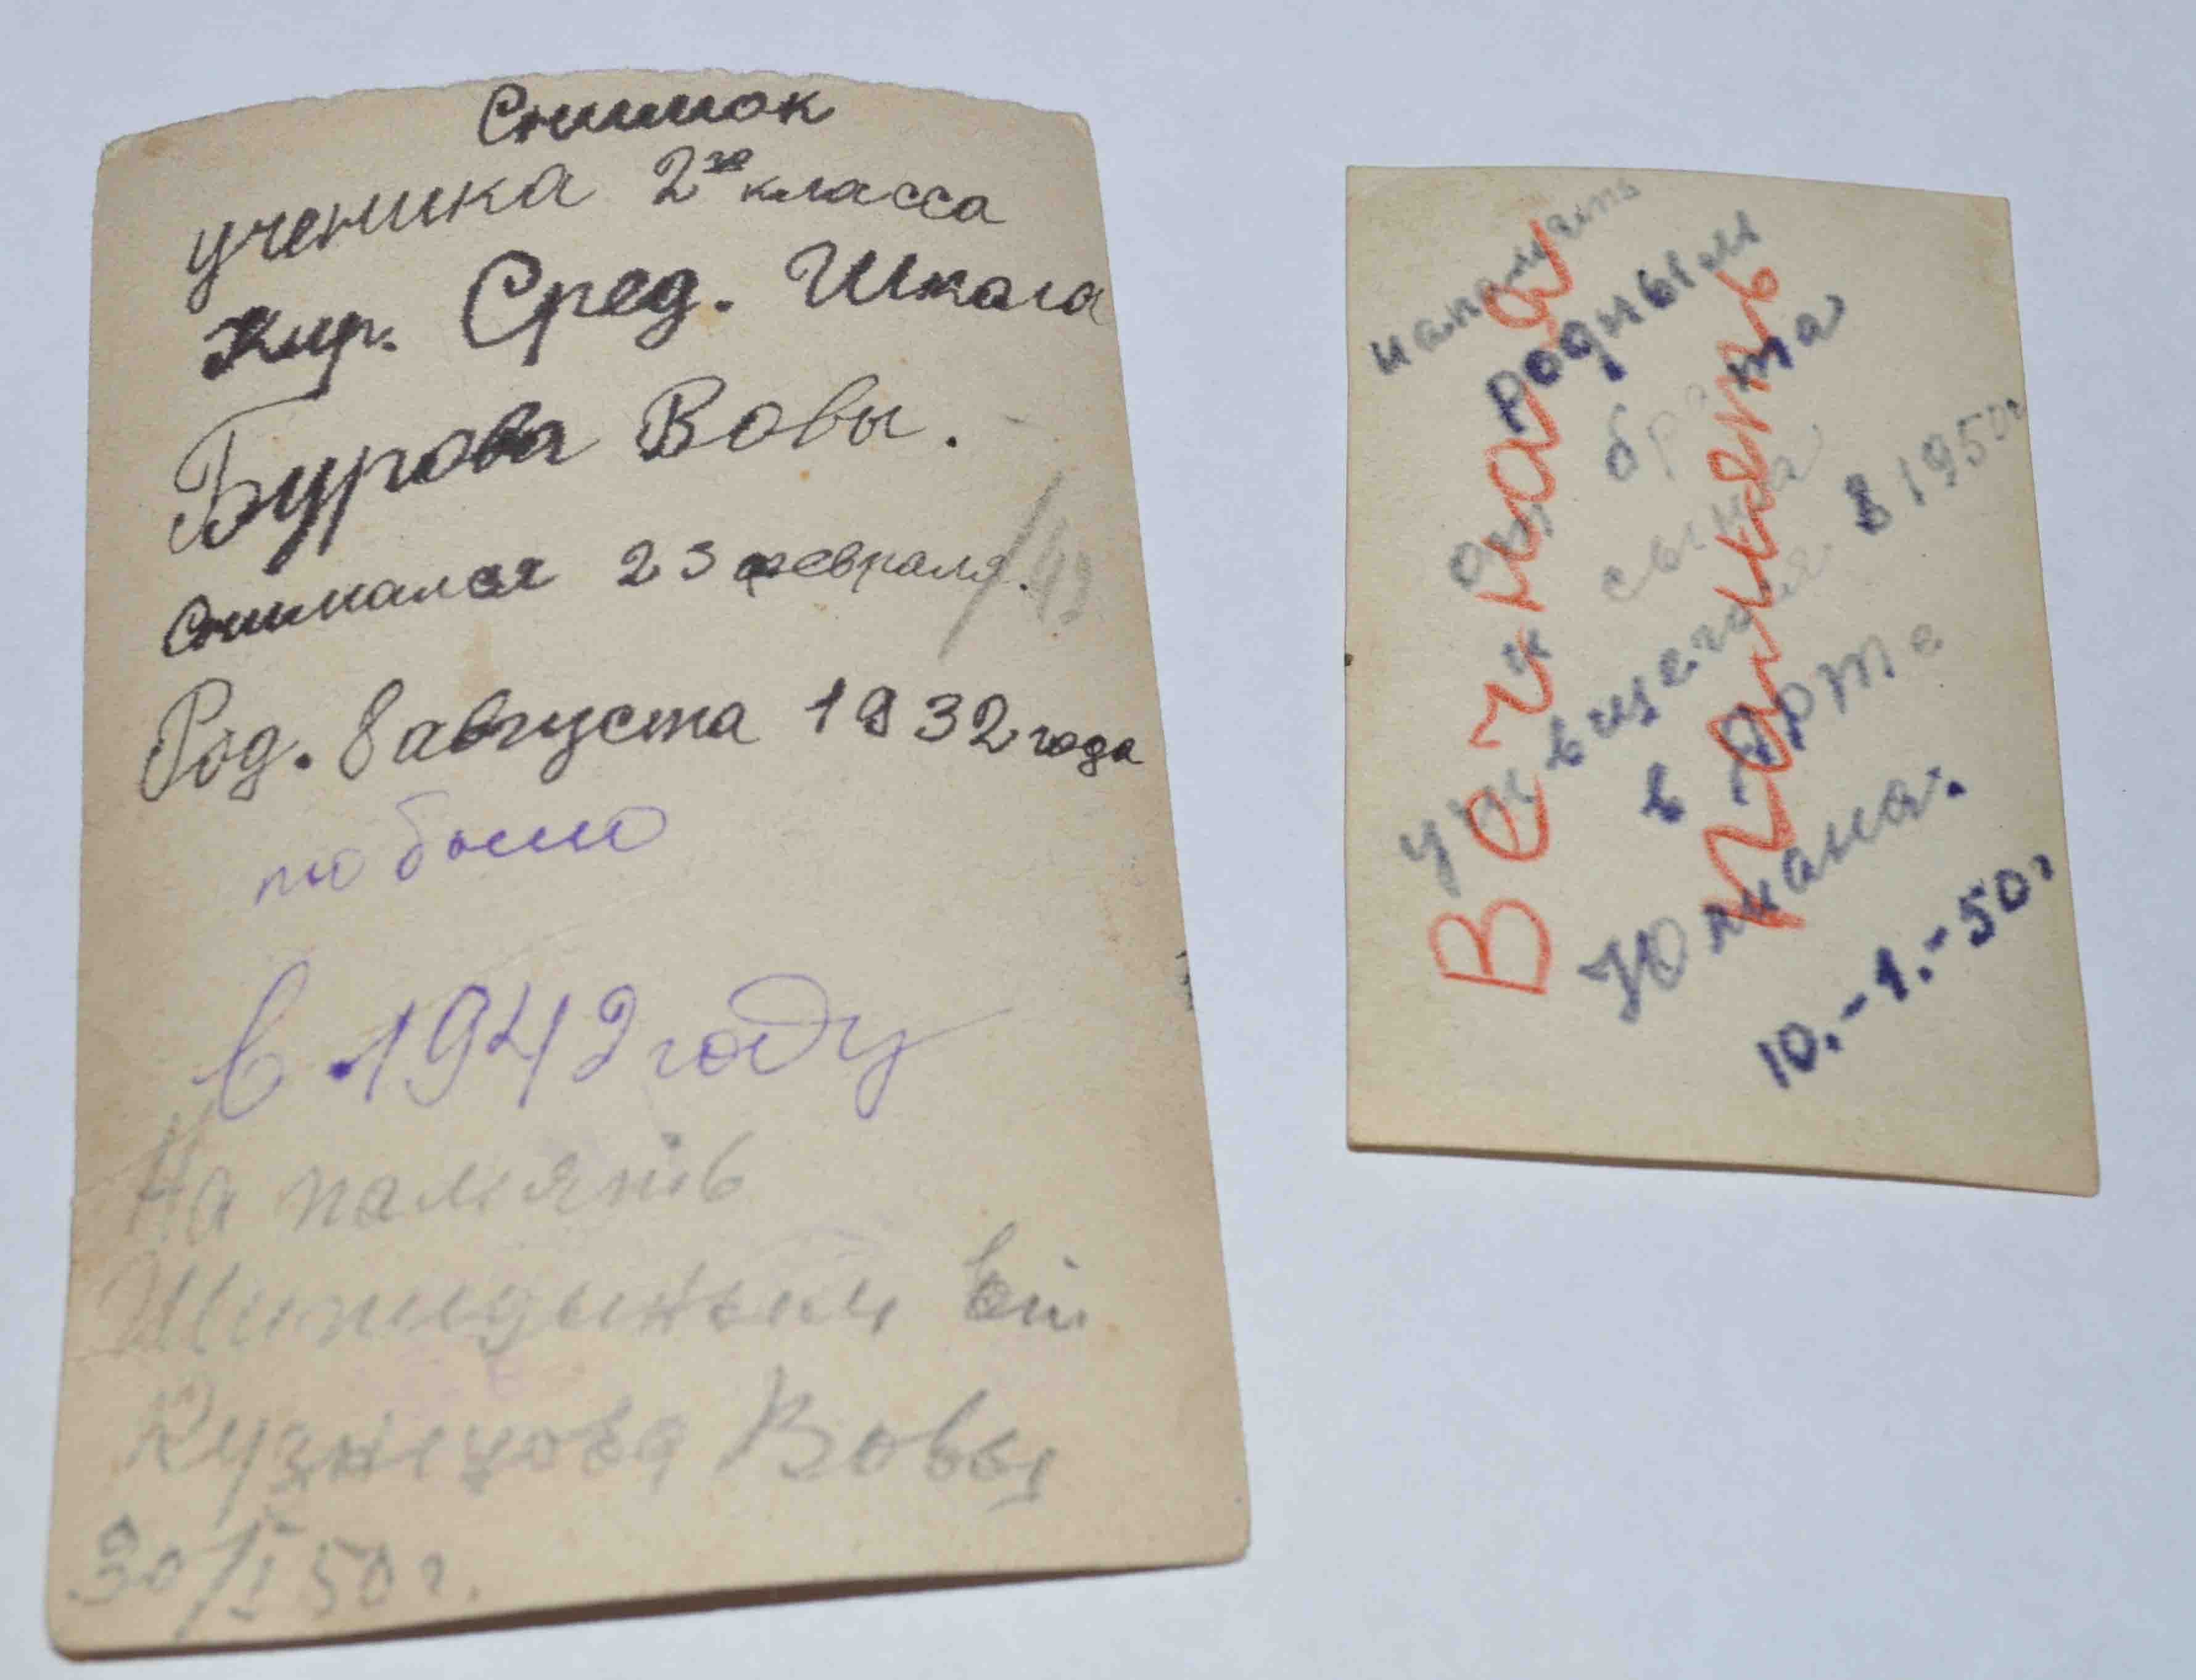 Снимок
ученика 2го класса
Кир. Сред. Школа
Бурова Вовы.
Снимался 23 февраля.
/43
Род. 8 августа 1932 года
то было
в 1942 году
На память
Кузнецова Вовы
30/I 50 г.
на память
родным
от брата
сына
учивщегося в 1950г
в
Юлиана.
10.-1.-50г
Вечная
Память